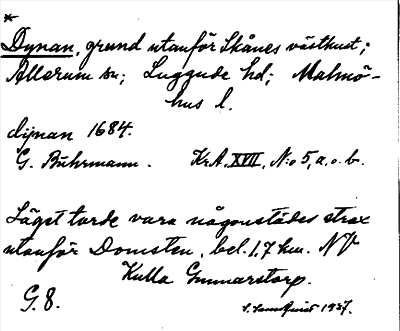 *
Dynan, grund utanför Skånes västkust;
Allerum sn; Luggude hd; Malmö-
hus l.
dijnan 1684.
G. Buhrmann. Kr.A. XVII, N:o 5, a. o. b.
Läget torde vara någonstädes strax
utanför Domsten, bel. 1,7 km. NV
Kulla Gunnarstorp.
G. 8. 1937.